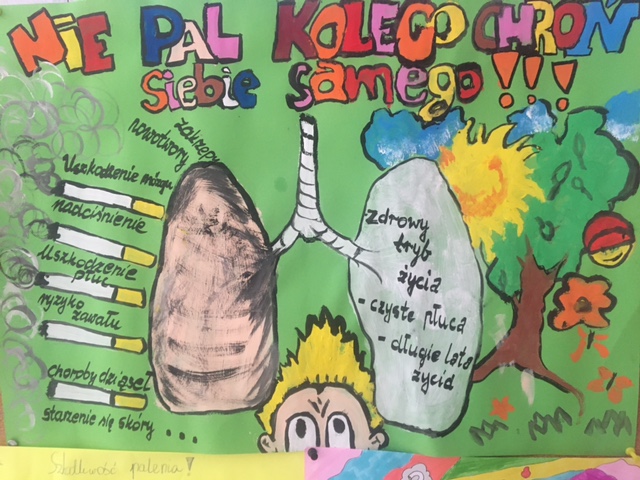 NiE PAL KOLEGO CHROŃ
siebie samego!!!
zakrzepy
nowotwory
Uszkodzenie mózgu
nadciśnienie
Uszkodzenie
płuc
ryzyko
zawału
choroby dziąseł
starzenie się skóry...
zdrowy
tryb
życia
- czyste płuca
- długie lata
życia
Szkodliwość palenia!